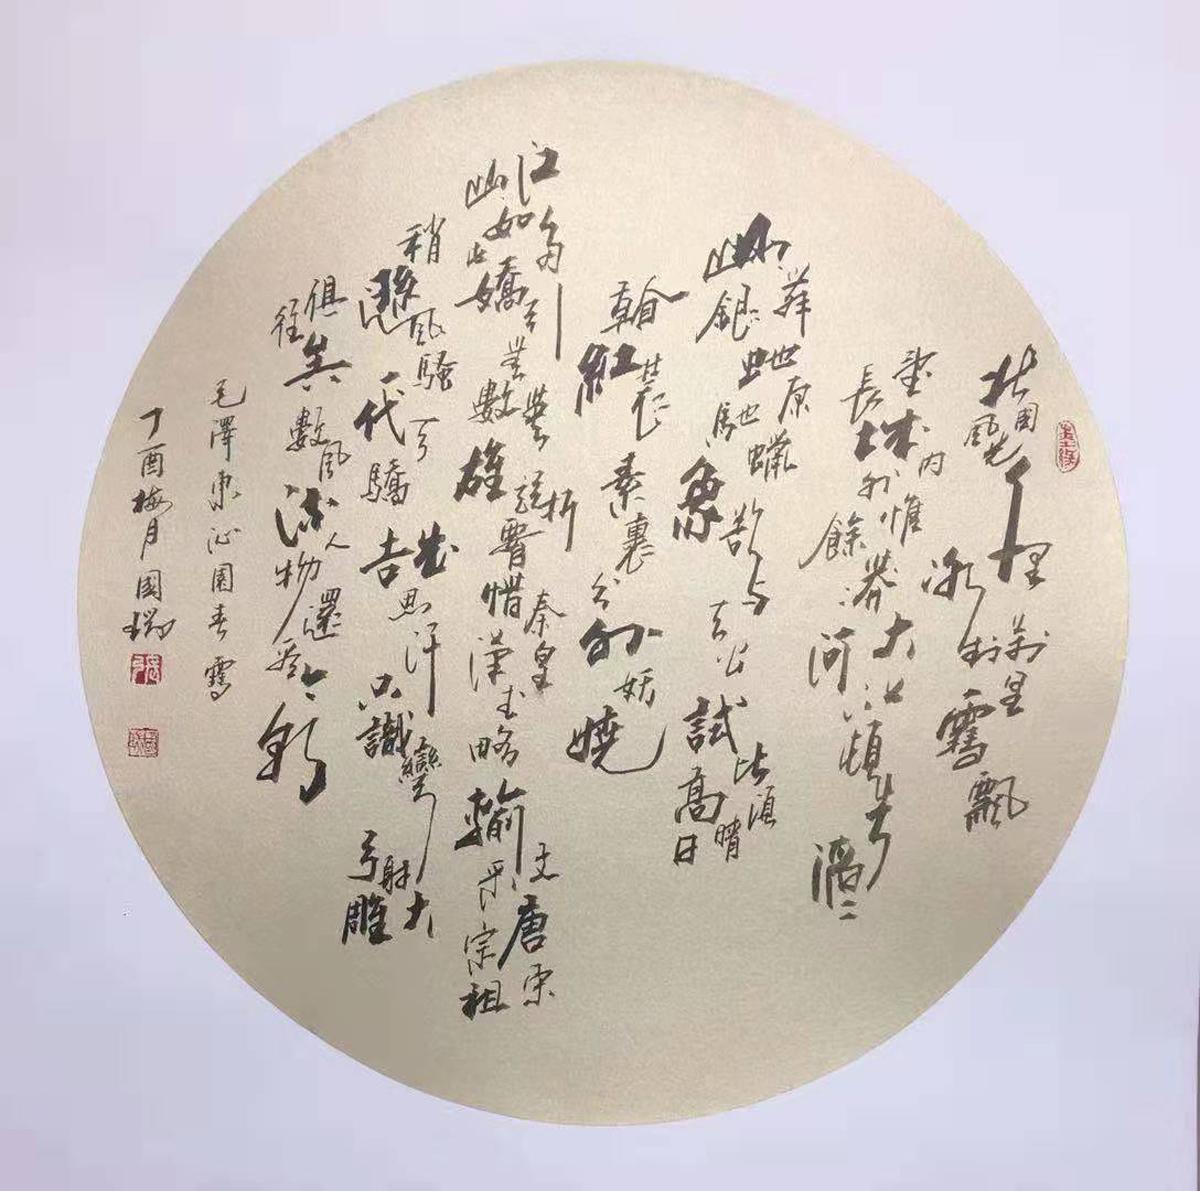 北國風光千里冰封萬里雪飄
望長城內外惟餘莽莽大河上下頓失滔滔
山舞銀蛇原馳蠟象欲與天公試比高須晴日
看紅裝素裹分外妖嬈
江山如此多嬌引無數英雄競折腰惜秦皇漢武略輸文采唐宗宋祖
稍遜風騷一代天驕成吉思汗只識彎弓射大雕
俱往矣數風流人物還看今朝
毛澤東沁園春雪
丁酉梅月國瑞